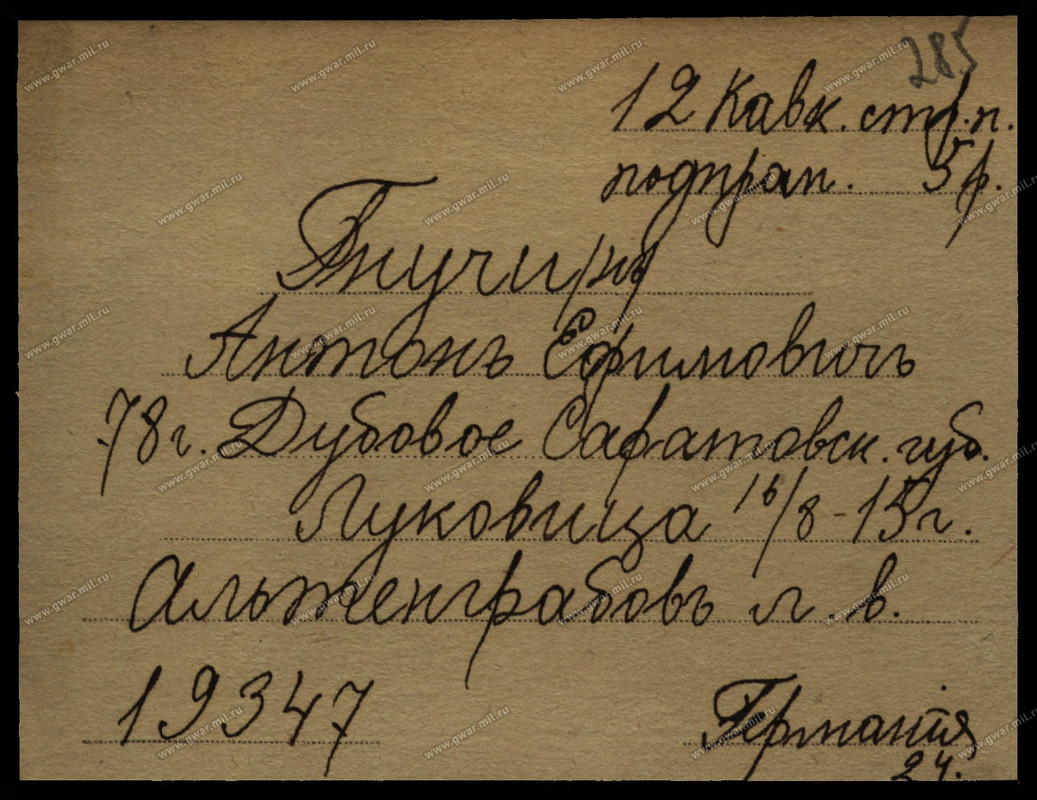 285
12 Кавк. стр. п.
подпрап. 5 р.
Антонъ Ефимовичъ
78 г. Дубовое Саратовск. губ.
Луковица 16/8 - 15 г.
Альтенграбовъ л. в.
19347
Германія
24.